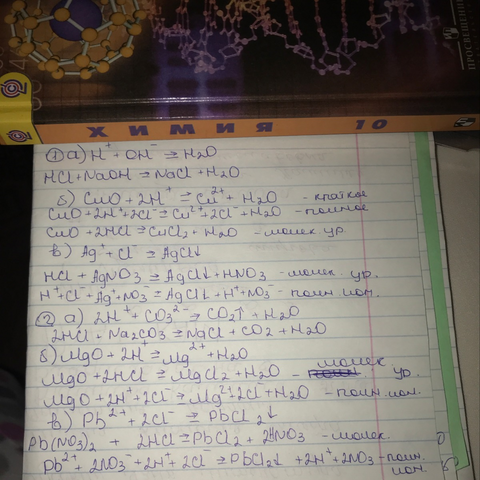 ПРОСВЕЩЕНИЕ
ХИМИЯ 10
① а) H⁺ + OH⁻ ⇄ H₂O
HCl + NaOH ⇄ NaCl + H₂O
б) CuO + 2H⁺ ⇄ Cu²⁺ + H₂O - краткое
CuO + 2H⁺ + 2Cl⁻ ⇄ Cu²⁺ + 2Cl⁻ + H₂O - полное
CuO + 2HCl ⇄ CuCl₂ + H₂O - молек ур.
в) Ag⁺ + Cl⁻ ⇄ AgCl↓
HCl + AgNO₃ ⇄ AgCl↓ + HNO₃ - молек. ур.
H⁺ + Cl⁻ + Ag⁺ + NO₃⁻ ⇄ AgCl↓ + H⁺ + NO₃⁻ - полн. ион.
② а) 2H⁺ + CO₃²⁻ → CO₂↑ + H₂O
2HCl + Na₂CO₃ ⇄ NaCl + CO₂ + H₂O
б) MgO + 2H⁺ ⇄ Mg²⁺ + H₂O
MgO + 2HCl ⇄ MgCl₂ + H₂O - молек ур.
MgO + 2H⁺ + 2Cl⁻ ⇄ Mg²⁺ 2Cl⁻ + H₂O - полн. ион.
в) Pb²⁺ + 2Cl⁻ → PbCl₂↓
Pb(NO₃)₂ + 2HCl ⇄ PbCl₂ + 2HNO₃ - молек.
Pb²⁺ + 2NO₃⁻ + 2H⁺ + 2Cl⁻ → PbCl₂↓ + 2H⁺ + 2NO₃ - полн. ион.